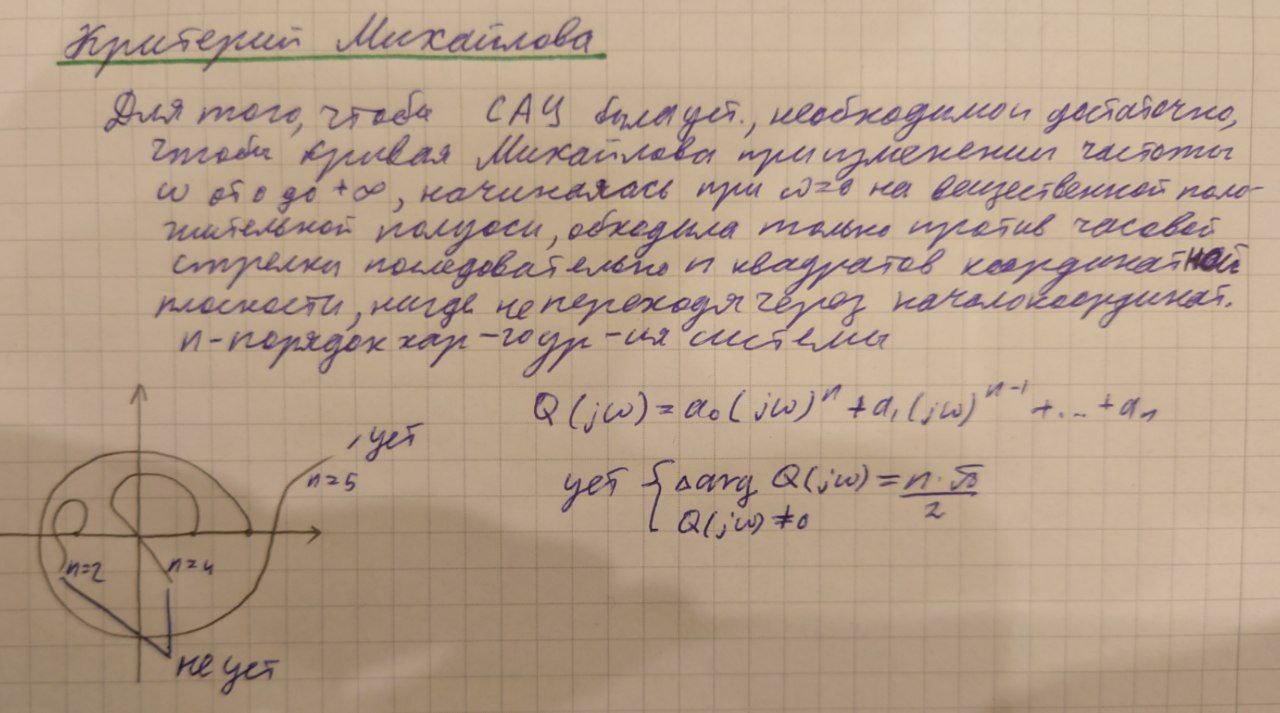 Критерий Михайлова
Для того, чтобы САУ была уст., необходимо и достаточно,
чтобы кривая Михайлова при изменении частоты
ω от 0 до +∞, начиналась при ω=0 на вещественной поло-
жительной полуоси, обходила только против часовой
стрелки последовательно n квадратов координатной
плоскости, нигде не переходя через начало координат.
n - порядок хар-го ур-ия системы
Q(jω) = a₀(jω)ⁿ + a₁(jω)ⁿ⁻¹ + ... + aₙ
уст
n=5
уст { Δarg Q(jω) = n·π/2
Q(jω) ≠ 0
n=2
n=4
не уст